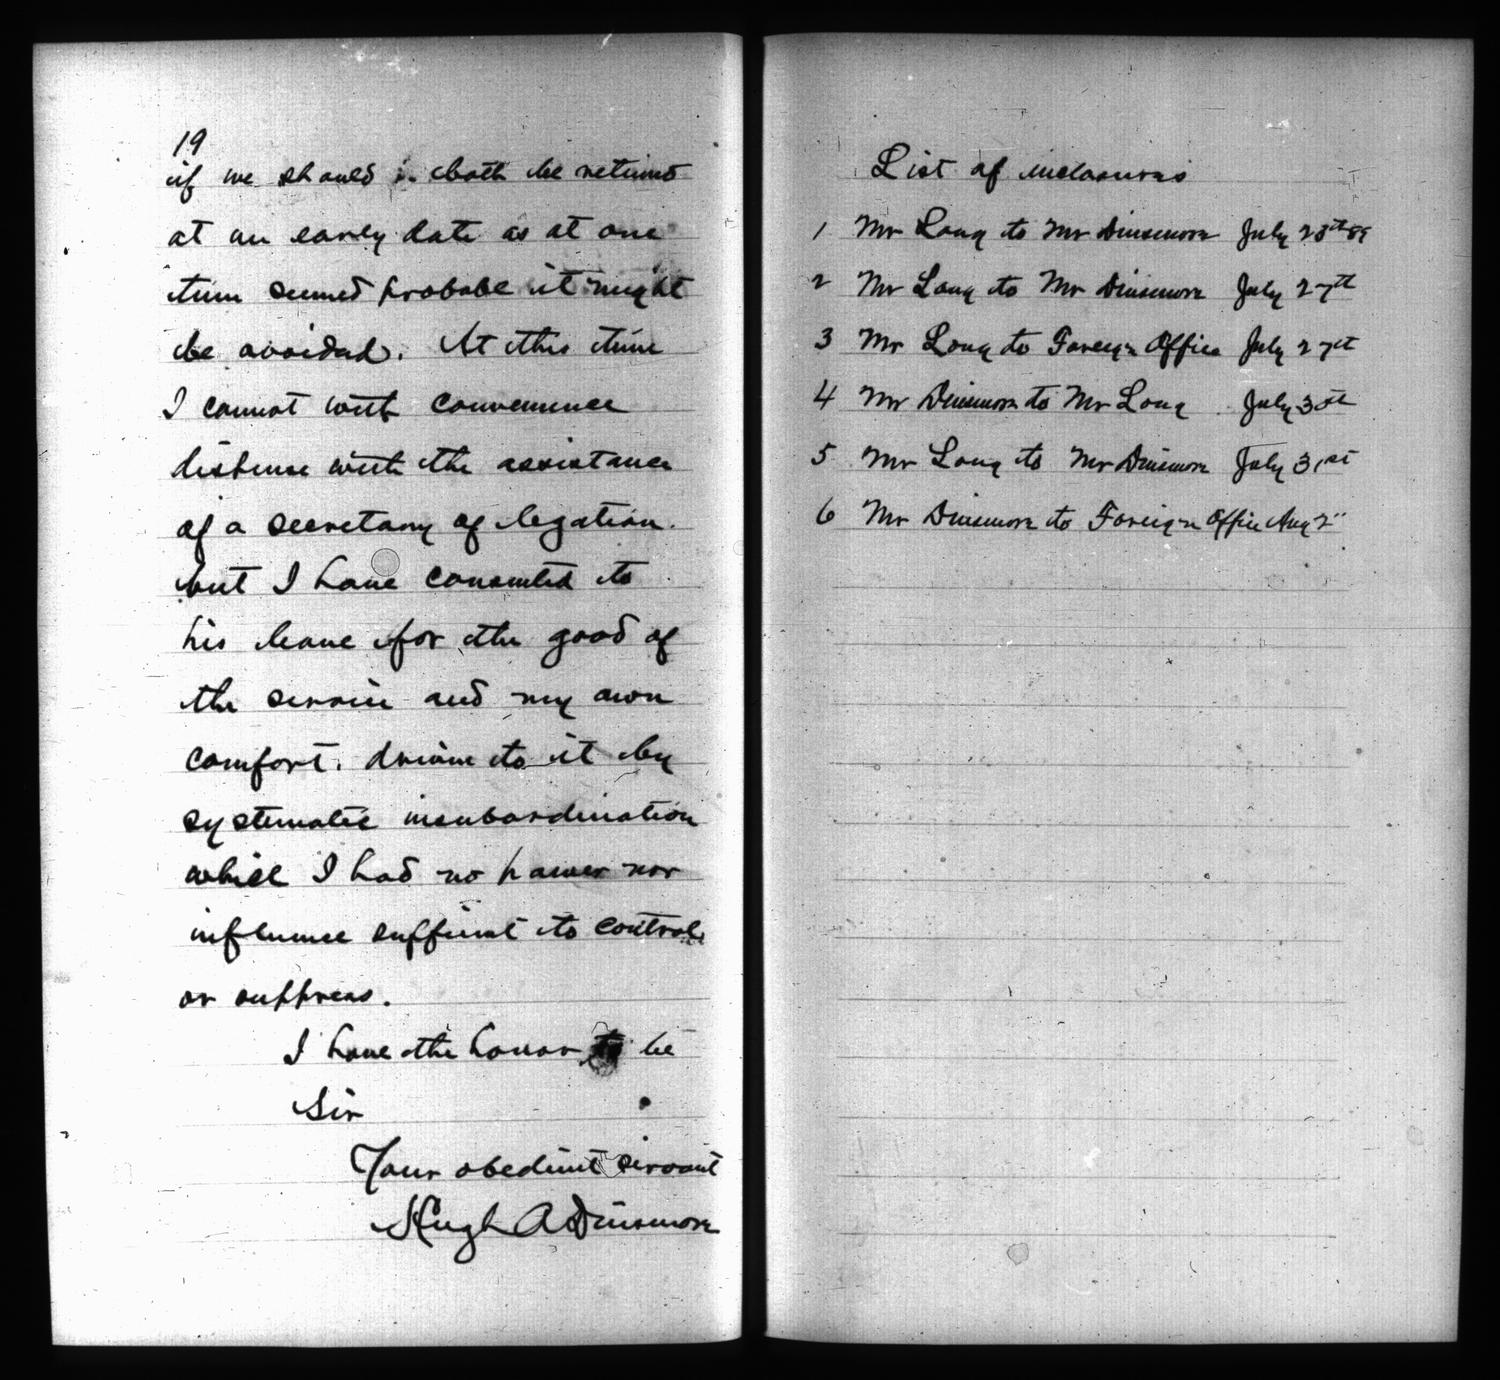 19
if we should both be retired
at an early date as at one
time seemed probabe it might
be avoided. At this time
I cannot with convenience
dispense with the assistance
of a secretary of legation.
but I have consented to
his leave for the good of
the service and my own
comfort. driven to it by
systematic insubordination
which I had no power nor
influence sufficient to control
or suppress.
I have the honor to be
Sir
Your obedient servant
Hugh A Dinsmore
List of inclosures
1 Mr Long to Mr Dinsmore July 89
2 Mr Long to Mr Dinsmore July 27th
3 Mr Long to Foreign Office July 27th
4 Mr Dinsmore to Mr Long July 30th
5 Mr Long to Mr Dinsmore July 31st
6 Mr Dinsmore to Foreign Office Aug 2"